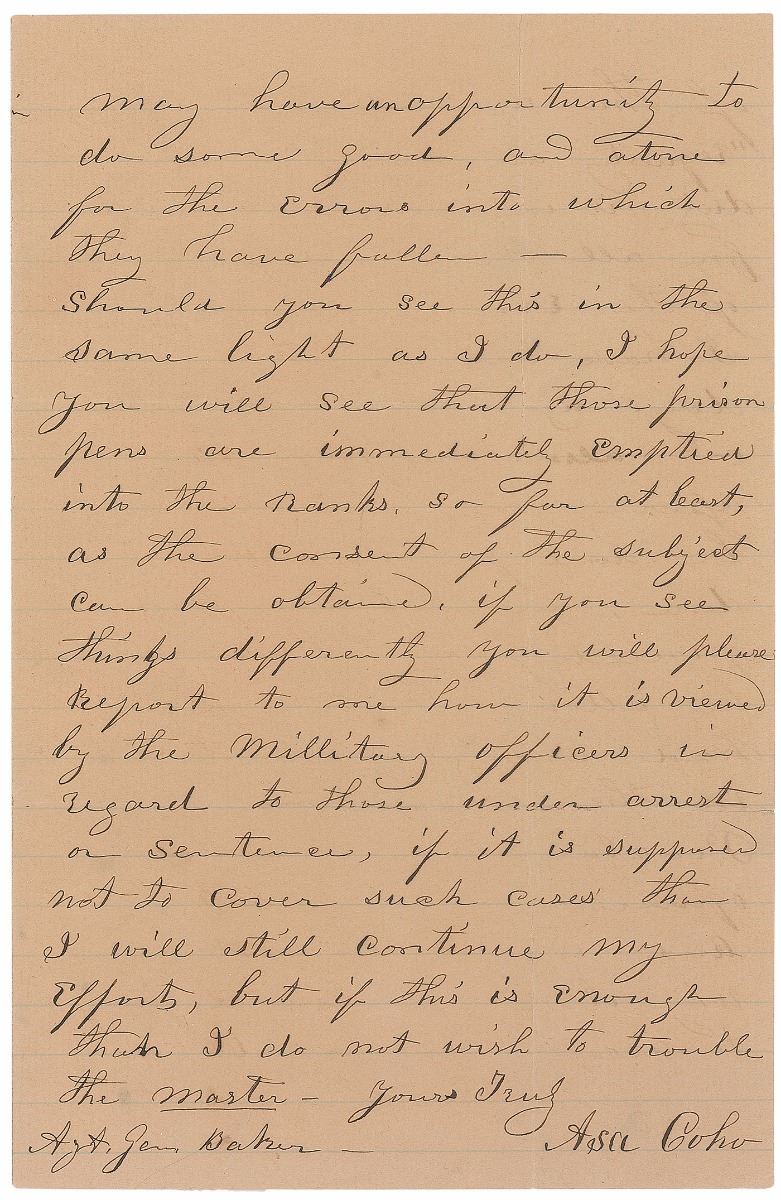 may have an opportunity to
do some good, and atone
for the Errors into which
they have fallen —
Should you see this in the
same light as I do, I hope
you will see that those prison
pens are immediately Emptied
into the Ranks, so far at least,
as the consent of the subject
can be obtained, if you see
things differently you will please
Report to me how it is viewed
by the Millitary officers in
regard to those under arrest
or Sentence, if it is supposed
not to cover such cases than
I will still continue my
Efforts, but if this is Enough
than I do not wish to trouble
the master - Yours Truly
Asa Coho
Agt. Gen. Baker —